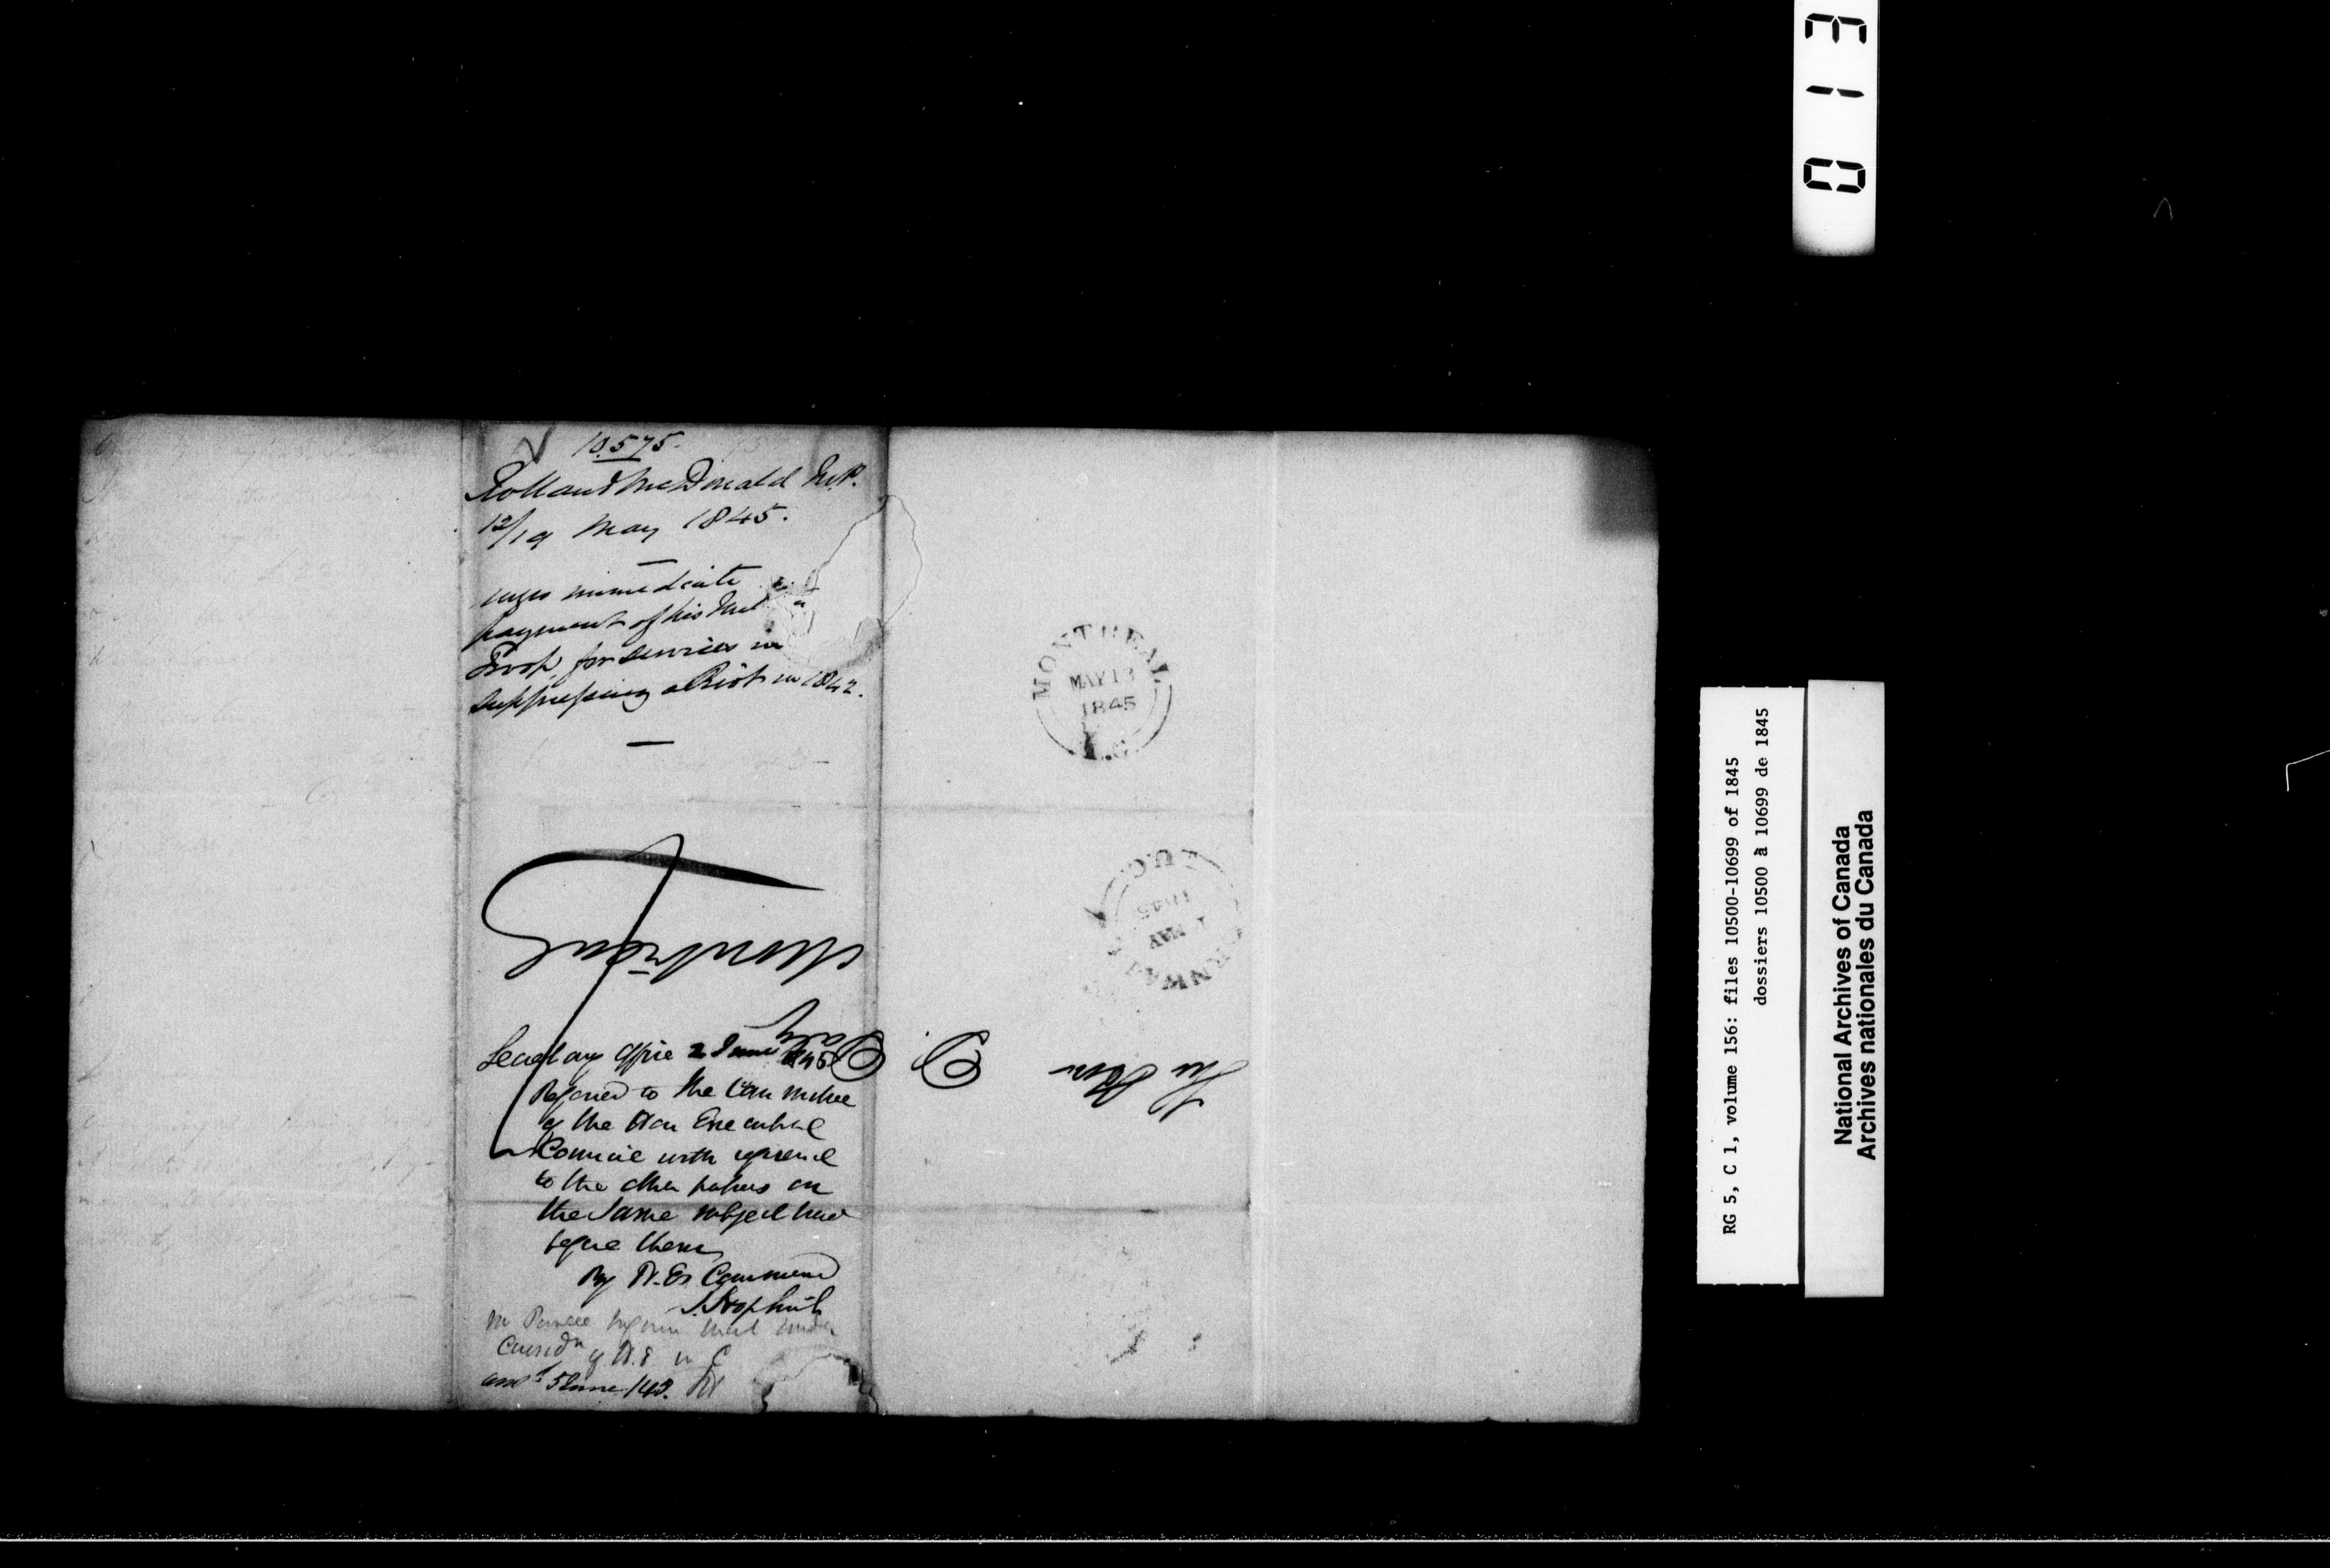 10.575.
Rolland McDonald M.P.
12/19 May 1845.
urges immediate
payment of his
Troop for services in
suppressing a Riot in 1842.
Montreal
The Hon
D. Daly
Secretary Office 2 June 1845
Referred to the Committee
of the Hon Executive
Council with reference
to the other papers on
the same subject now
before them
By H. Es Command
J. Hopkirk
inform that under
Considn of H.E in C
ansd 5 June /45. JH
MONTREAL
MAY 13
1845
L.C.
MAY
1845
U.C.
013
RG 5, C 1, volume 156: files 10500-10699 of 1845
dossiers 10500 à 10699 de 1845
National Archives of Canada
Archives nationales du Canada